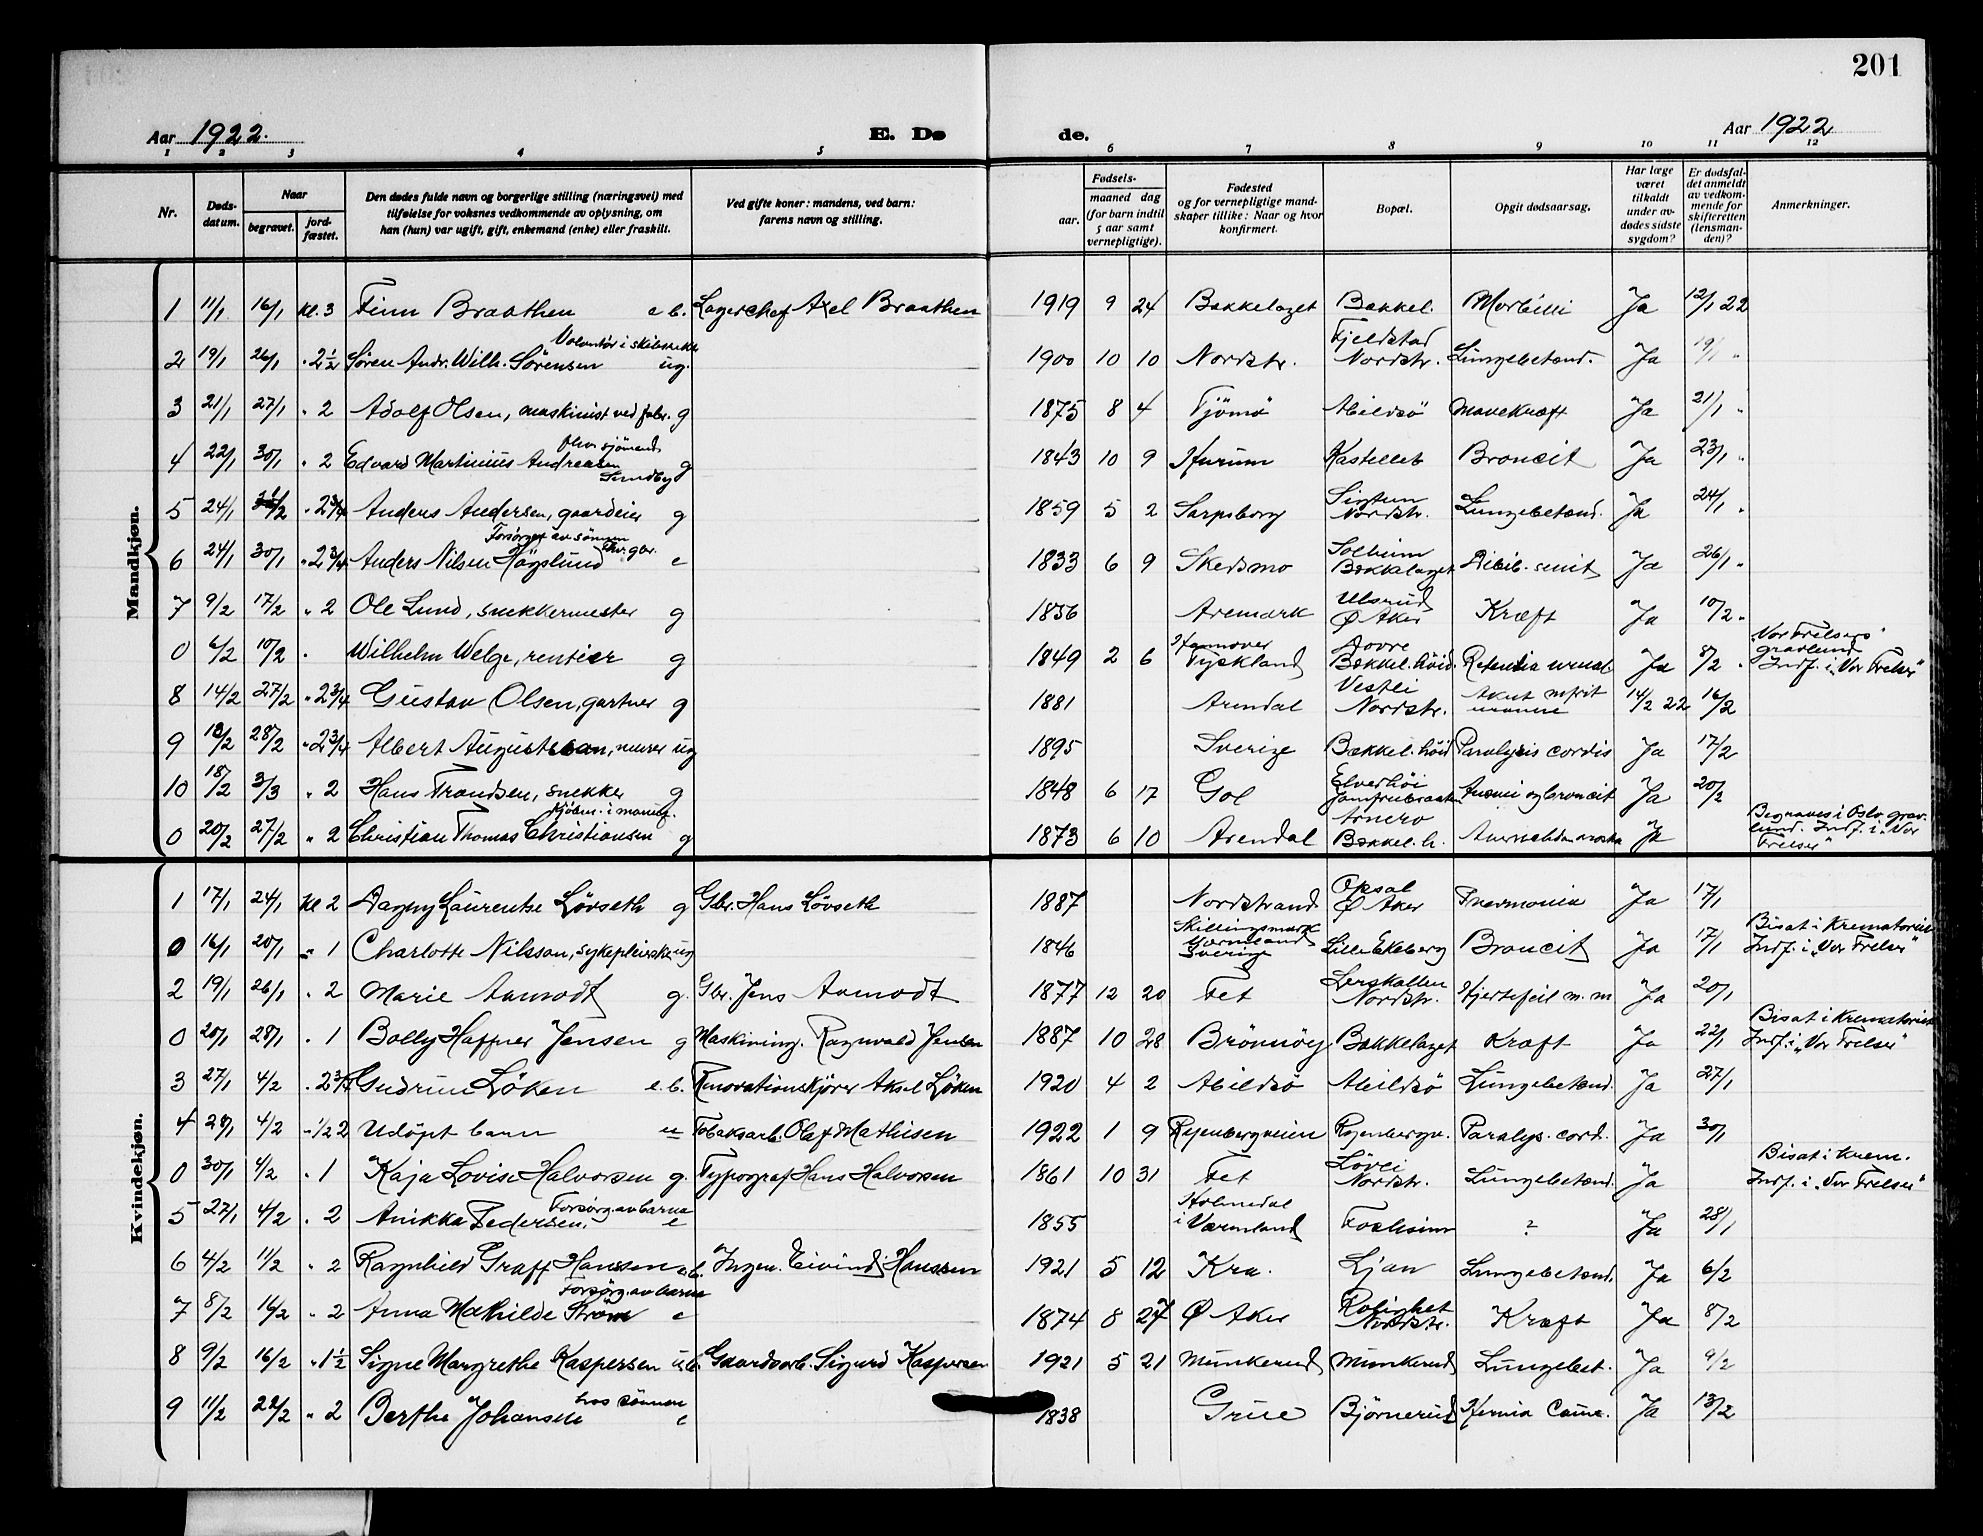 201
Aar 1922. E. Dø de. Aar 1922
1 2 3 4 5 6 7 8 9 10 11 12
Nr.
Døds-
datum.
Naar
begravet.
jord-
fæstet.
Den dødes fulde navn og borgerlige stilling (næringsvei) med
tilføielse for voksnes vedkommende av oplysning, om
han (hun) var ugift, gift, enkemand (enke) eller fraskilt.
Ved gifte koner: mandens, ved barn:
farens navn og stilling.
Fødsels-
aar.
maaned dag
(for barn indtil
5 aar samt
vernepligtige).
Fødested
og for vernepligtige mand-
skaper tillike: Naar og hvor
konfirmert.
Bopæl.
Opgit dødsaarsag.
Har læge
været
tilkaldt
under av-
dødes sidste
sygdom?
Er dødsfal-
det anmeldt
av vedkom-
mende for
skifteretten
(lensman-
den)?
Anmerkninger.
Mandkjøn.
1 11/1 16/1 kl. 3 Finn Braathen e.b. Lagerchef Axel Braathen 1919 9 24 Bækkelaget Bækkel. Morbilli Ja 12/1 22
Volontør i skibsrekk Fjeldstad
2 19/1 26/1 " 2½ Søren Andr. Wilh. Sörensen ug. 1900 10 10 Nordstr. Nordstr. Lungebetænd. Ja 19/1 "
3 21/1 27/1 " 2 Adolf Olsen, maskinist ved fabr. g 1875 8 4 Tjömö Abildsö Mavekræft Ja 21/1 "
fhv. sjömand
4 22/1 30/1 " 2 Edvard Martinius Andreasen g 1843 10 9 Hurum Kastellet Broncit Ja 23/1 "
Sundby
5 24/1 1/2 " 2¾ Anders Andersen, gaardeier g 1859 5 2 Sarpsborg Nordstr. Lungebetænd. Ja 24/1 "
Forsörget av sönnen Fhv. gbr. Solheim
6 24/1 30/1 " 2¾ Anders Nilsen Högslund e 1833 6 9 Skedsmo Bækkelaget Ja 26/1 "
Ulsrud
7 9/2 17/2 " 2 Ole Lund, snekkermester g 1856 Aremark Ø Aker Kræft Ja 10/2 "
Hannover Dovre Vor Frelsers gravlund
0 6/2 10/2 " Wilhelm Welge, rentier g 1849 2 6 Tyskland Bækkel. höid. Ja 8/2 " Indf. i „Vor Frelser"
Vestli Akut
8 14/2 27/2 " 2¾ Gustav Olsen, gartner g 1881 Arendal Nordstr. 14/2 22 16/2
9 28/2 " 2¾ Albert Augustsson, murer ug 1895 Sverige Bækkel. höid Paralysis cordis Ja 17/2
Elverhöi
10 18/2 3/3 " 2 Hans Trondsen, snekker g 1848 6 17 Gol Jomfrubraaten og broncit Ja 20/2
Kjöbm. i manuf. Begraves i Oslo grav-
0 20/2 27/2 " 2 Christian Thomas Christiansen g 1873 6 10 Arendal Bækkel. h. Ja lund. Indf. i „Vor
Frelser"
Kvindekjøn.
Opsal
1 17/1 24/1 kl 2 Dagny Laurentse Lövseth g Gbr. Hans Lövseth 1887 Nordstrand Ø Aker Pneumonia Ja 17/1
Skillingsmark Bisat i Krematoriet
0 16/1 20/1 " 1 Charlotte Nilsson, sykepleierske ug 1846 Värmland Sverige Lille Ekeberg Broncit Ja 17/1 Indf. i „Vor Frelser"
Lerskallen
2 19/1 26/1 " 2 Marie Aamodt g. Gbr. Jens Aamodt 1877 12 20 Fet Nordstr. Hjertefeil m. m Ja 20/1
Bisat i Krematoriet
0 20/1 28/1 " 1 Bolly Haffner Jensen g Maskining. Ragnvald Jensen 1887 10 28 Brönnöy Bækkelaget Kræft Ja 22/1 Indf. i „Vor Frelser"
3 27/1 4/2 " 2¾ Gudrun Löken e.b. Renovationskjörer Aksel Löken 1920 4 2 Abildsö Abildsö Lungebetænd. Ja 27/1
4 28/1 4/2 " ½2 Udöpt barn u Tobaksarb. Olaf Mathisen 1922 1 9 Ryenbergveien Ryenbergv. Paralys. cord. Ja 30/1
Bisat i Krem.
0 30/1 4/2 " 1 Kaja Lovise Halvorsen g. Typograf Hans Halvorsen 1861 10 31 Fet Nordstr. Lungebetænd. Ja Indf. i „Vor Frelser"
Forsörg. av barna Holmedal
5 27/1 4/2 " 2 Anikka Pedersen, e 1855 i Värmland ? Ja 28/1
6 4/2 11/2 " 2 Ragnhild Graff Hanssen e.b. Ingen. Eivind Hanssen 1921 5 12 Kra. Ljan Lungebetænd. Ja 6/2
Forsörg. av barna Rolighet
7 8/2 16/2 " 2 Anna Mathilde Ström e 1874 8 27 Ø Aker Nordstr. Kræft Ja 8/2
8 9/2 16/2 " 1½ Signe Margrethe Kaspersen u.b. Gaardsarb. Sigurd Kaspersen 1921 5 21 Munkerud Munkerud Lungebet. Ja 9/2
hos sönnen
9 11/2 22/2 " 2 Berthe Johansen e 1838 Grue Björnerud Ja 13/2